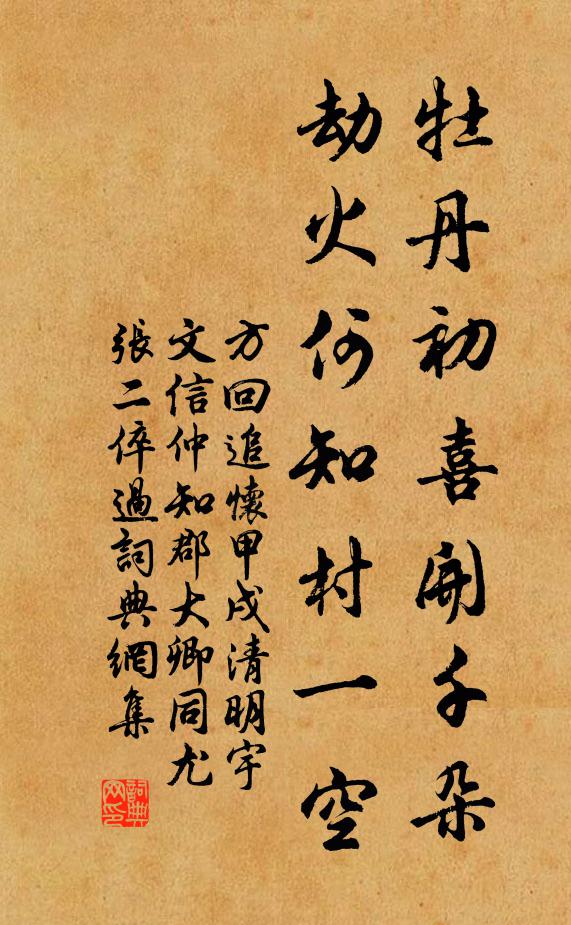 牡丹初喜開千朵
劫火何知村一空
方回追懷甲戌清明宇
文信仲知郡大卿同尤
張二倅過詞典網集
詞典
网印